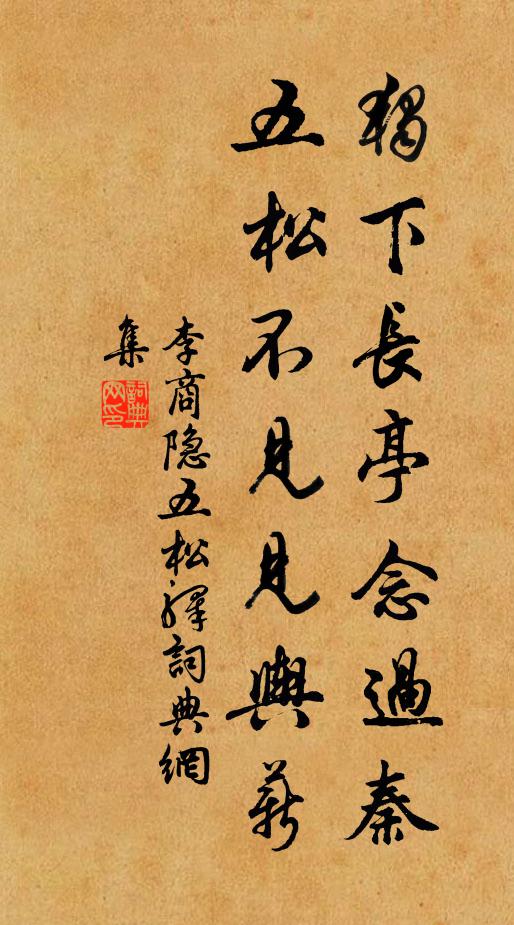 獨下長亭念過秦
五松不見見輿薪
李商隐五松驛詞典網
集
詞典
网印